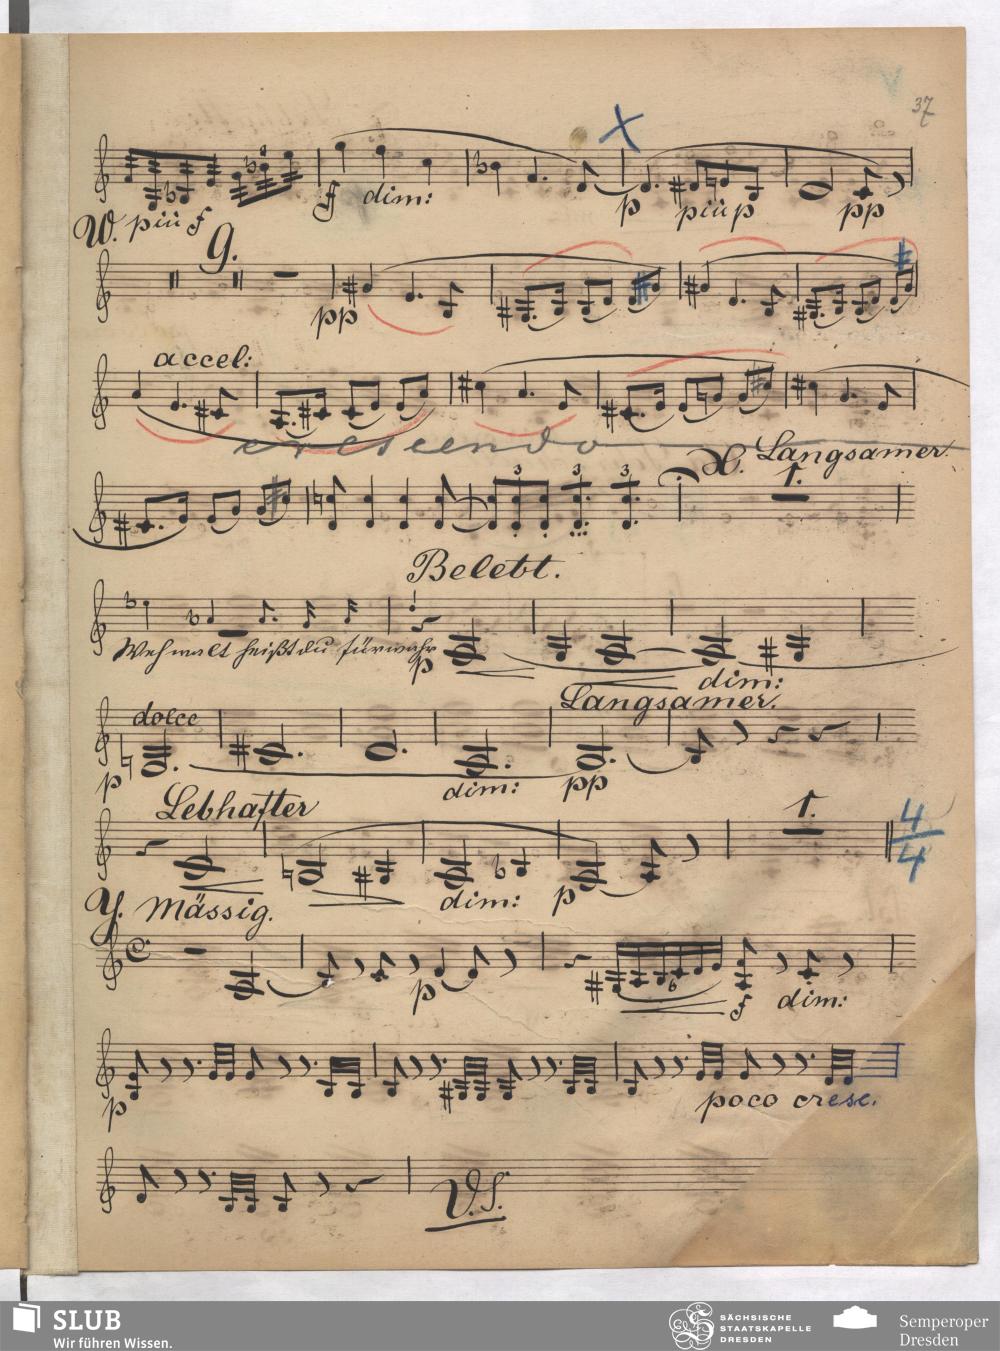 37
X
W. più f
f dim:
p più p
pp
9.
pp
accel:
crescendo
X. Langsamer.
3 3 3
1.
Belebt.
Wehwalt heißt du fürwahr
p
dim:
Langsamer.
dolce
p
dim: pp
Lebhafter
1.
4/4
dim: p
Y. Mässig.
p
f dim:
p
poco cresc.
V.S.
SLUB
Wir führen Wissen.
SÄCHSISCHE
STAATSKAPELLE
DRESDEN
Semperoper
Dresden